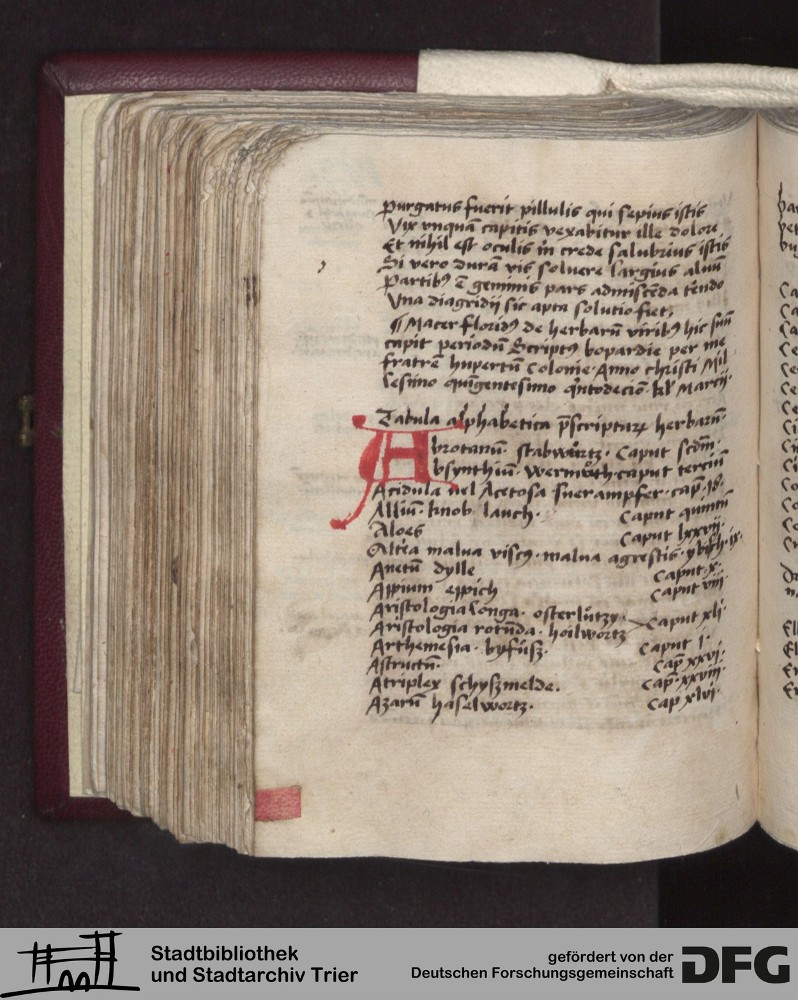 purgatus fuerit pillulis qui sepius istis
Vix vnquā capitis vexabitur ille dolore
Et nihil est oculis in crede salubrius istis
Si vero durā vis soluere largius aluū
Partibꝫ ē geminis pars admiscēda tēndo
Vna diagridij sic apta solutio fiet,
¶ Macer floridꝫ de herbarū viribꝫ hic suū
capit periodū Scriptꝫ bopardie per me
fratrē hupertū Colonie Anno christi Mil
lesimo quīgentesimo qͥntodecīo kl' Marcij.
Tabula alphabetica p̄scripturaꝝ herbarū.
Abrotanū stabwůrtz. Caput scdm̄.
Absynthiū. wermůth. caput terciū
Acidula uel Acetosa suerampfer. cap. 18.
Alliū. knob lauch. Caput quintū
Aloes Caput lxxvij.
Altea malua viscꝫ. malua agrestis. ybisch. ix.
Anetū dylle Caput x.
Appium eppich Caput viij
Aristologia longa. osterlůtzy.
Aristologia rotūda. hoilwortz Caput xli
Arthemesia. byfůsz. Caput 1.
Astructū. Cap̄ xxvi.
Atriplex schyszmelde. Cap. xxviij.
Azarū haselwortz. Cap xlvi.
Stadtbibliothek
und Stadtarchiv Trier
gefördert von der
Deutschen Forschungsgemeinschaft
DFG